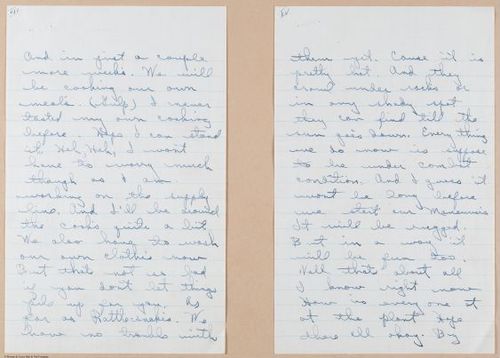 And in just a couple
more weeks. We will
be cooking our own
meals. (Gulp) I never
tasted my own cooking
before. Hope I can stand
it. Heh Heh, I won't
have to worry much
though as I am
working on the supply
line. And I'll be around
the cooks quite a bit.
We also have to wash
our own clothes now
But that's not so bad
if you don't let things
pile up for you. As
far as Rattlesnakes. We
have no trouble with
them yet. Cause it is
pretty hot. And they
crawl under rocks or
in any shady spot
they can find till the
sun goes down. Every thing
we do now is suppose
to be under combat
condition. And I guess it
wont be long before
we start our Maneuvers
It will be rugged.
But in a way it
will be fun too.
Well that's about all
I know right now
How is every one at
at the plant. Hope
there all okay. By